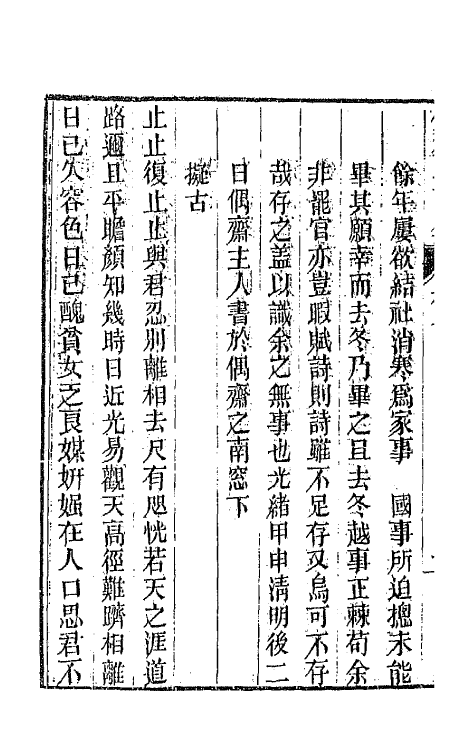 餘年屢欲結社消寒爲家事　國事所迫摠未能
畢其願幸而去冬乃畢之且去冬越事正棘苟余
非罷官亦豈暇賦詩則詩雖不足存又烏可不存
哉存之蓋以識余之無事也光緒甲申淸明後二
日偶齋主人書於偶齋之南窓下
擬古
止止復止止與君忍別離相去尺有咫恍若天之涯道
路邇且平瞻顏知幾時日近光易觀天高徑難躋相離
日已久容色日已醜貧女乏良媒妍媸在人口思君不